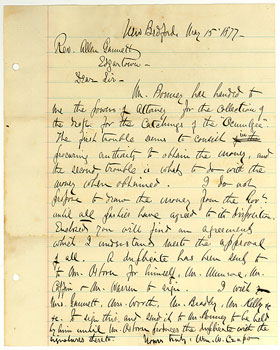 New Bedford, May 15th 1877 -
Rev. Allen Gannett
Edgartown -
Dear Sir -
Mr. Bonney has handed to
me the powers of Attorney for the collection of
the draft for the Catchings of the "Ocmulgee".
The first trouble seems to consist in
procuring authority to obtain the money, and
the second trouble is what to do with the
money when obtained. I do not
propose to draw the money from the Govt
until all parties have agreed to its disposition.
Enclosed you will find an agreement
which I understand meets the approval
of all. A duplicate has been sent to
to Mr. Osborn for himself, Mr. Munroe, Mr.
Coffin & Mr. Warren to sign. I wish
Mrs. Gannett, Mrs. Worth, Mr. Bradley, Mr. Kelley &
&c. to sign this, and send it to Mr. Bonney to be held
by him until Mr. Osborn furnishes the duplicate with the
signatures thereto. Yours truly, Wm. W. Crapo